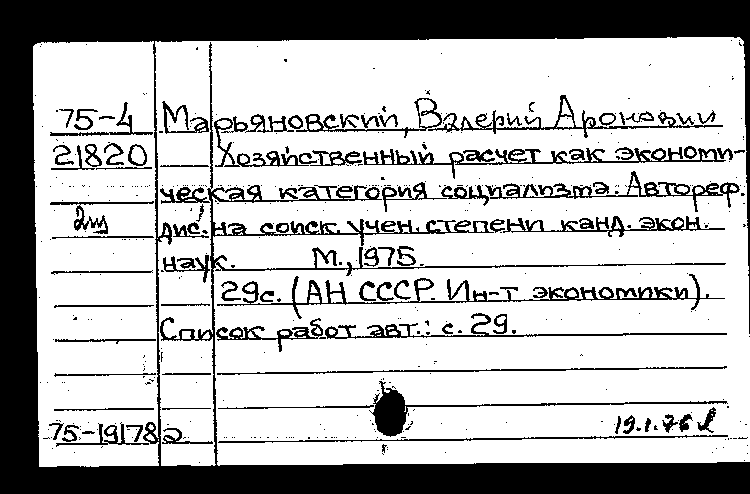 75-4 Марьяновский, Валерий Аронович
21820 Хозяйственный расчет как экономи-
ческая категория социализма. Автореф.
дис. на соиск. учен. степени канд. экон.
наук. М., 1975.
29с. (АН СССР. Ин-т экономики).
Список работ авт.: с. 29.
75-19178 19.1.76